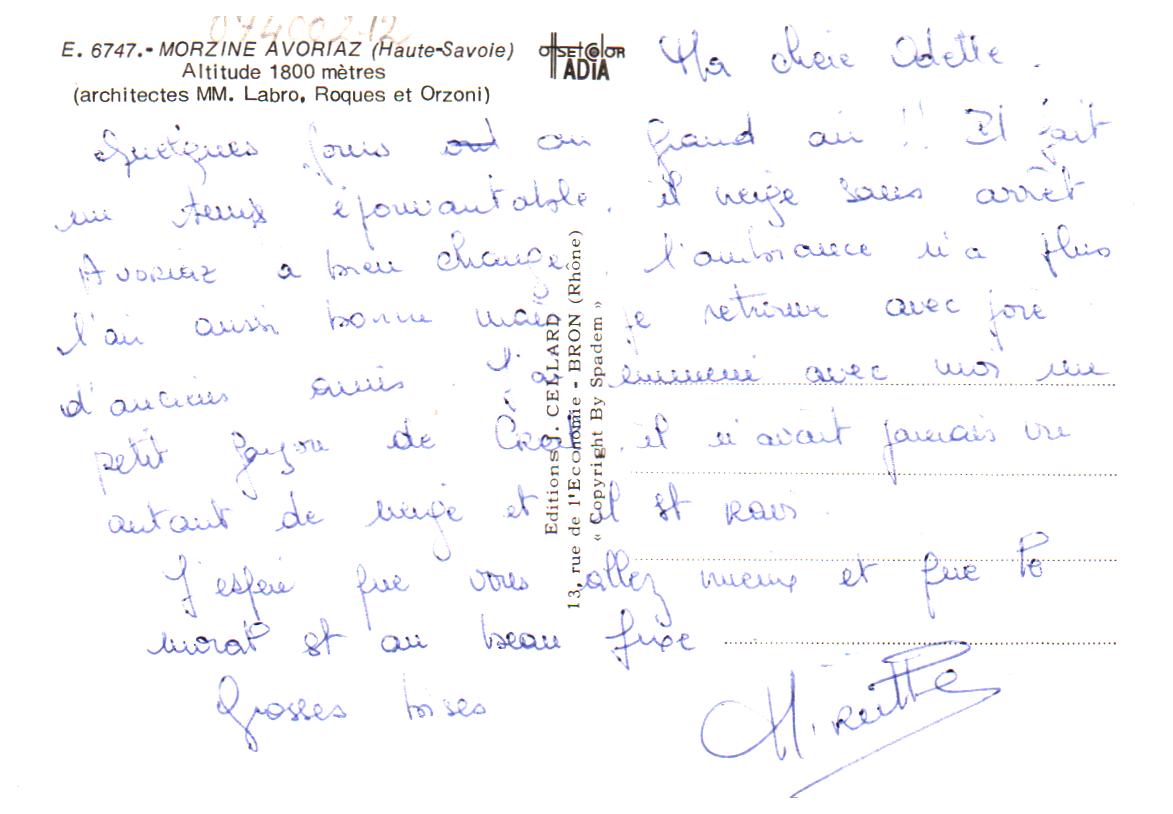 07400212
E. 6747.- MORZINE AVORIAZ (Haute-Savoie)
Altitude 1800 mètres
(architectes MM. Labro, Roques et Orzoni)
OFFSET COLOR
ADIA
Ma chère Odette.
Quelques jours au grand air !! Il fait
un temps épouvantable, il neige sans arrêt
Avoriaz a bien changé, l'ambiance n'a plus
l'air aussi bonne mais je retrouve avec joie
d'anciens amis. J'ai emmené avec moi un
petit garçon de, il n'avait jamais vu
autant de neige et il est ravi.
J'espère que vous allez mieux et que le
moral est au beau fixe
Grosses bises
Mireille
Editions J. CELLARD
13, rue de l'Economie - BRON (Rhône)
« Copyright By Spadem »